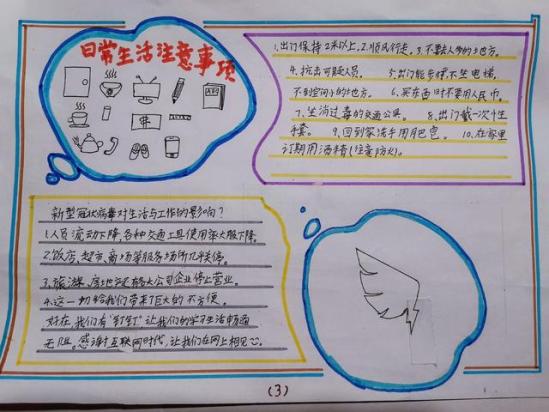 日常生活注意事项
1.出门保持2米以上.2.顺风行走.3.不要去人多的地方.
4.抗击可疑人员. 5.出门能步撑不坐电梯,
不到空间小的地方. 6.买东西时不要用人民币.
7.坐消过毒的交通公具. 8.出门戴一次性
手套. 9.回到家洗手用肥皂. 10.在家里
订期用酒精(注意防火).
新型冠状病毒对生活与工作的影响?
1.人员流动下降,各种交通工具使用率大服下降.
2.饭店,超市,商场等服务场所几特关停.
3.旅游、房地产还有各大公司企业停止营业.
4.这一切给我们带来了巨大的不方便.
好在,我们有"钉钉"让我们的学习生活畅通
无阻.感谢互联网时代,让我们在网上相见
(3)